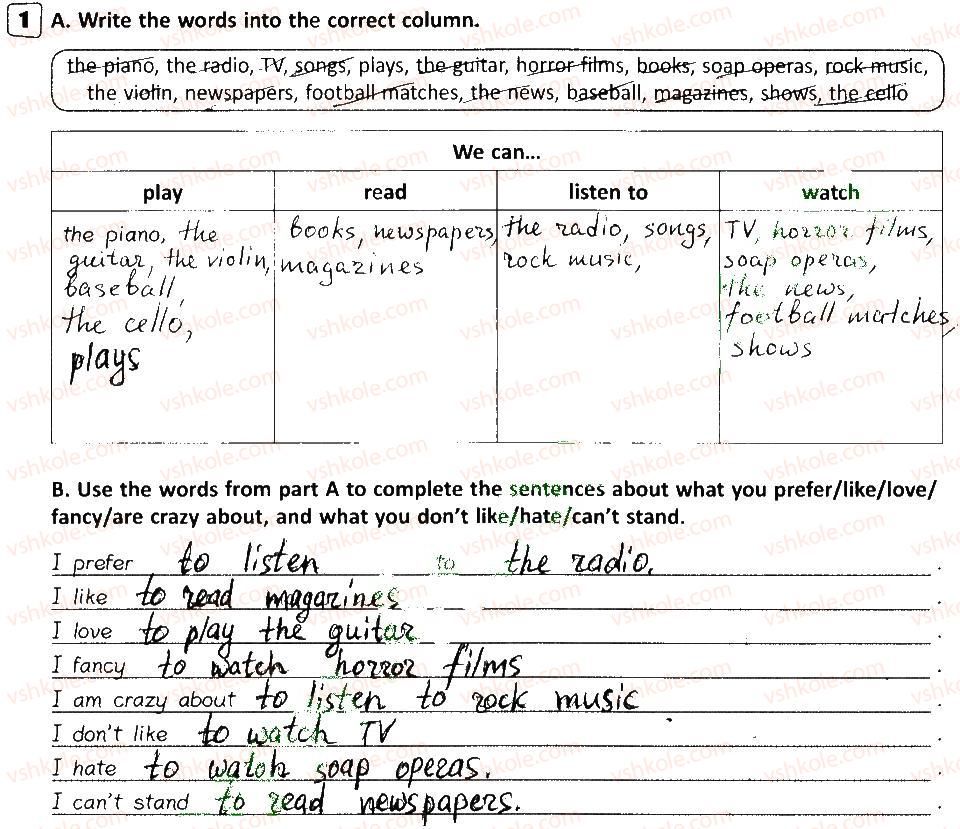 1 A. Write the words into the correct column.
the piano, the radio, TV, songs, plays, the guitar, horror films, books, soap operas, rock music,
the violin, newspapers, football matches, the news, baseball, magazines, shows, the cello
We can...
play read listen to watch
the piano, the books, newspapers, the radio, songs, TV, horror films,
guitar, the violin, magazines rock music, soap operas,
baseball, the news,
the cello, football matches,
plays shows
B. Use the words from part A to complete the sentences about what you prefer/like/love/
fancy/are crazy about, and what you don't like/hate/can't stand.
I prefer to listen to the radio.
I like to read magazines.
I love to play the guitar.
I fancy to watch horror films.
I am crazy about to listen to rock music.
I don't like to watch TV.
I hate to watch soap operas.
I can't stand to read newspapers.
vshkole.com